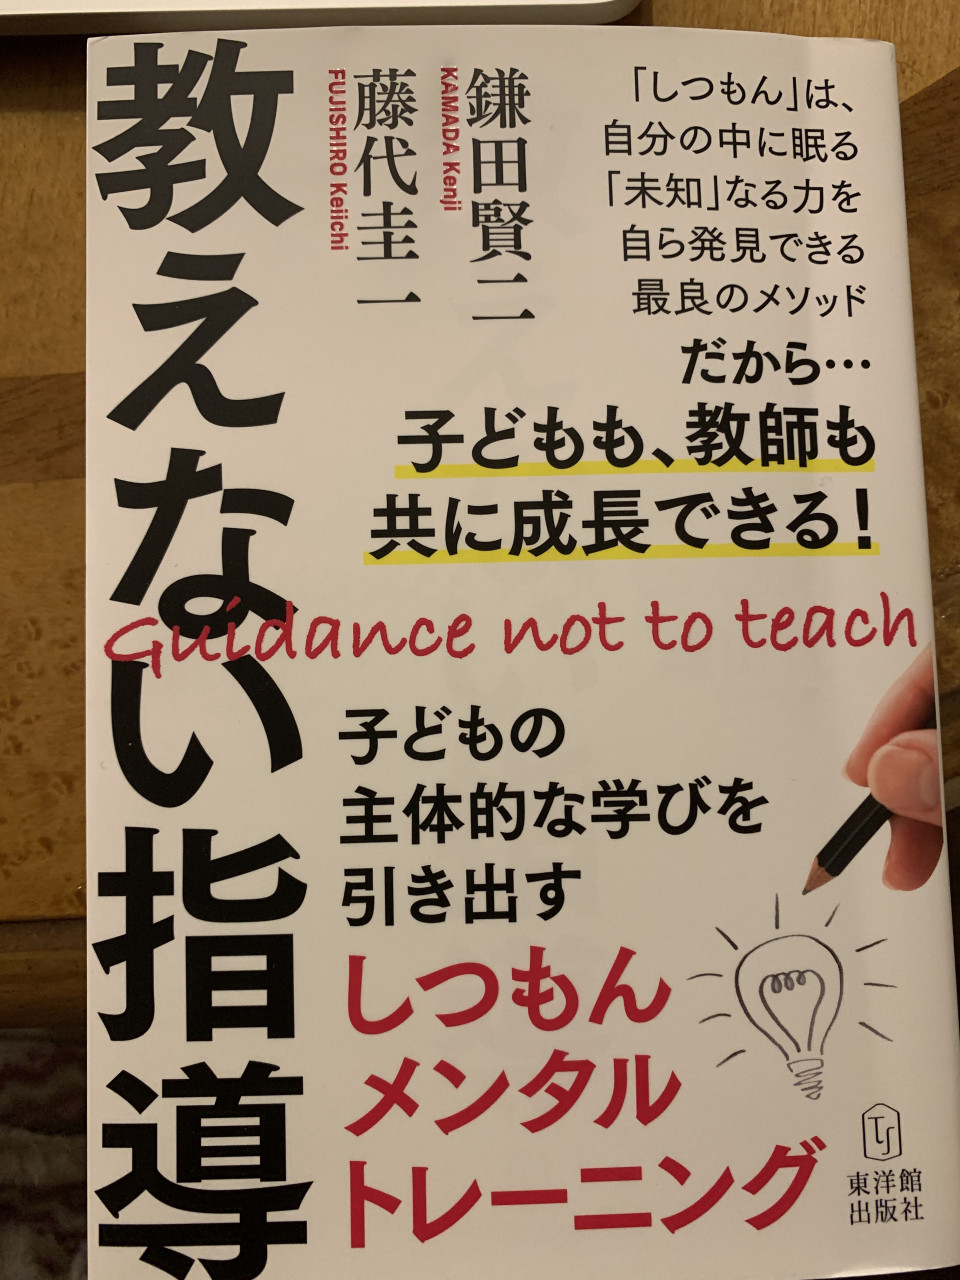 教えない指導
鎌田賢二
KAMADA Kenji
藤代圭一
FUJISHIRO Keiichi
「しつもん」は、
自分の中に眠る
「未知」なる力を
自ら発見できる
最良のメソッド
だから…
子どもも、教師も
共に成長できる!
Guidance not to teach
子どもの
主体的な学びを
引き出す
しつもん
メンタル
トレーニング
TS
東洋館
出版社